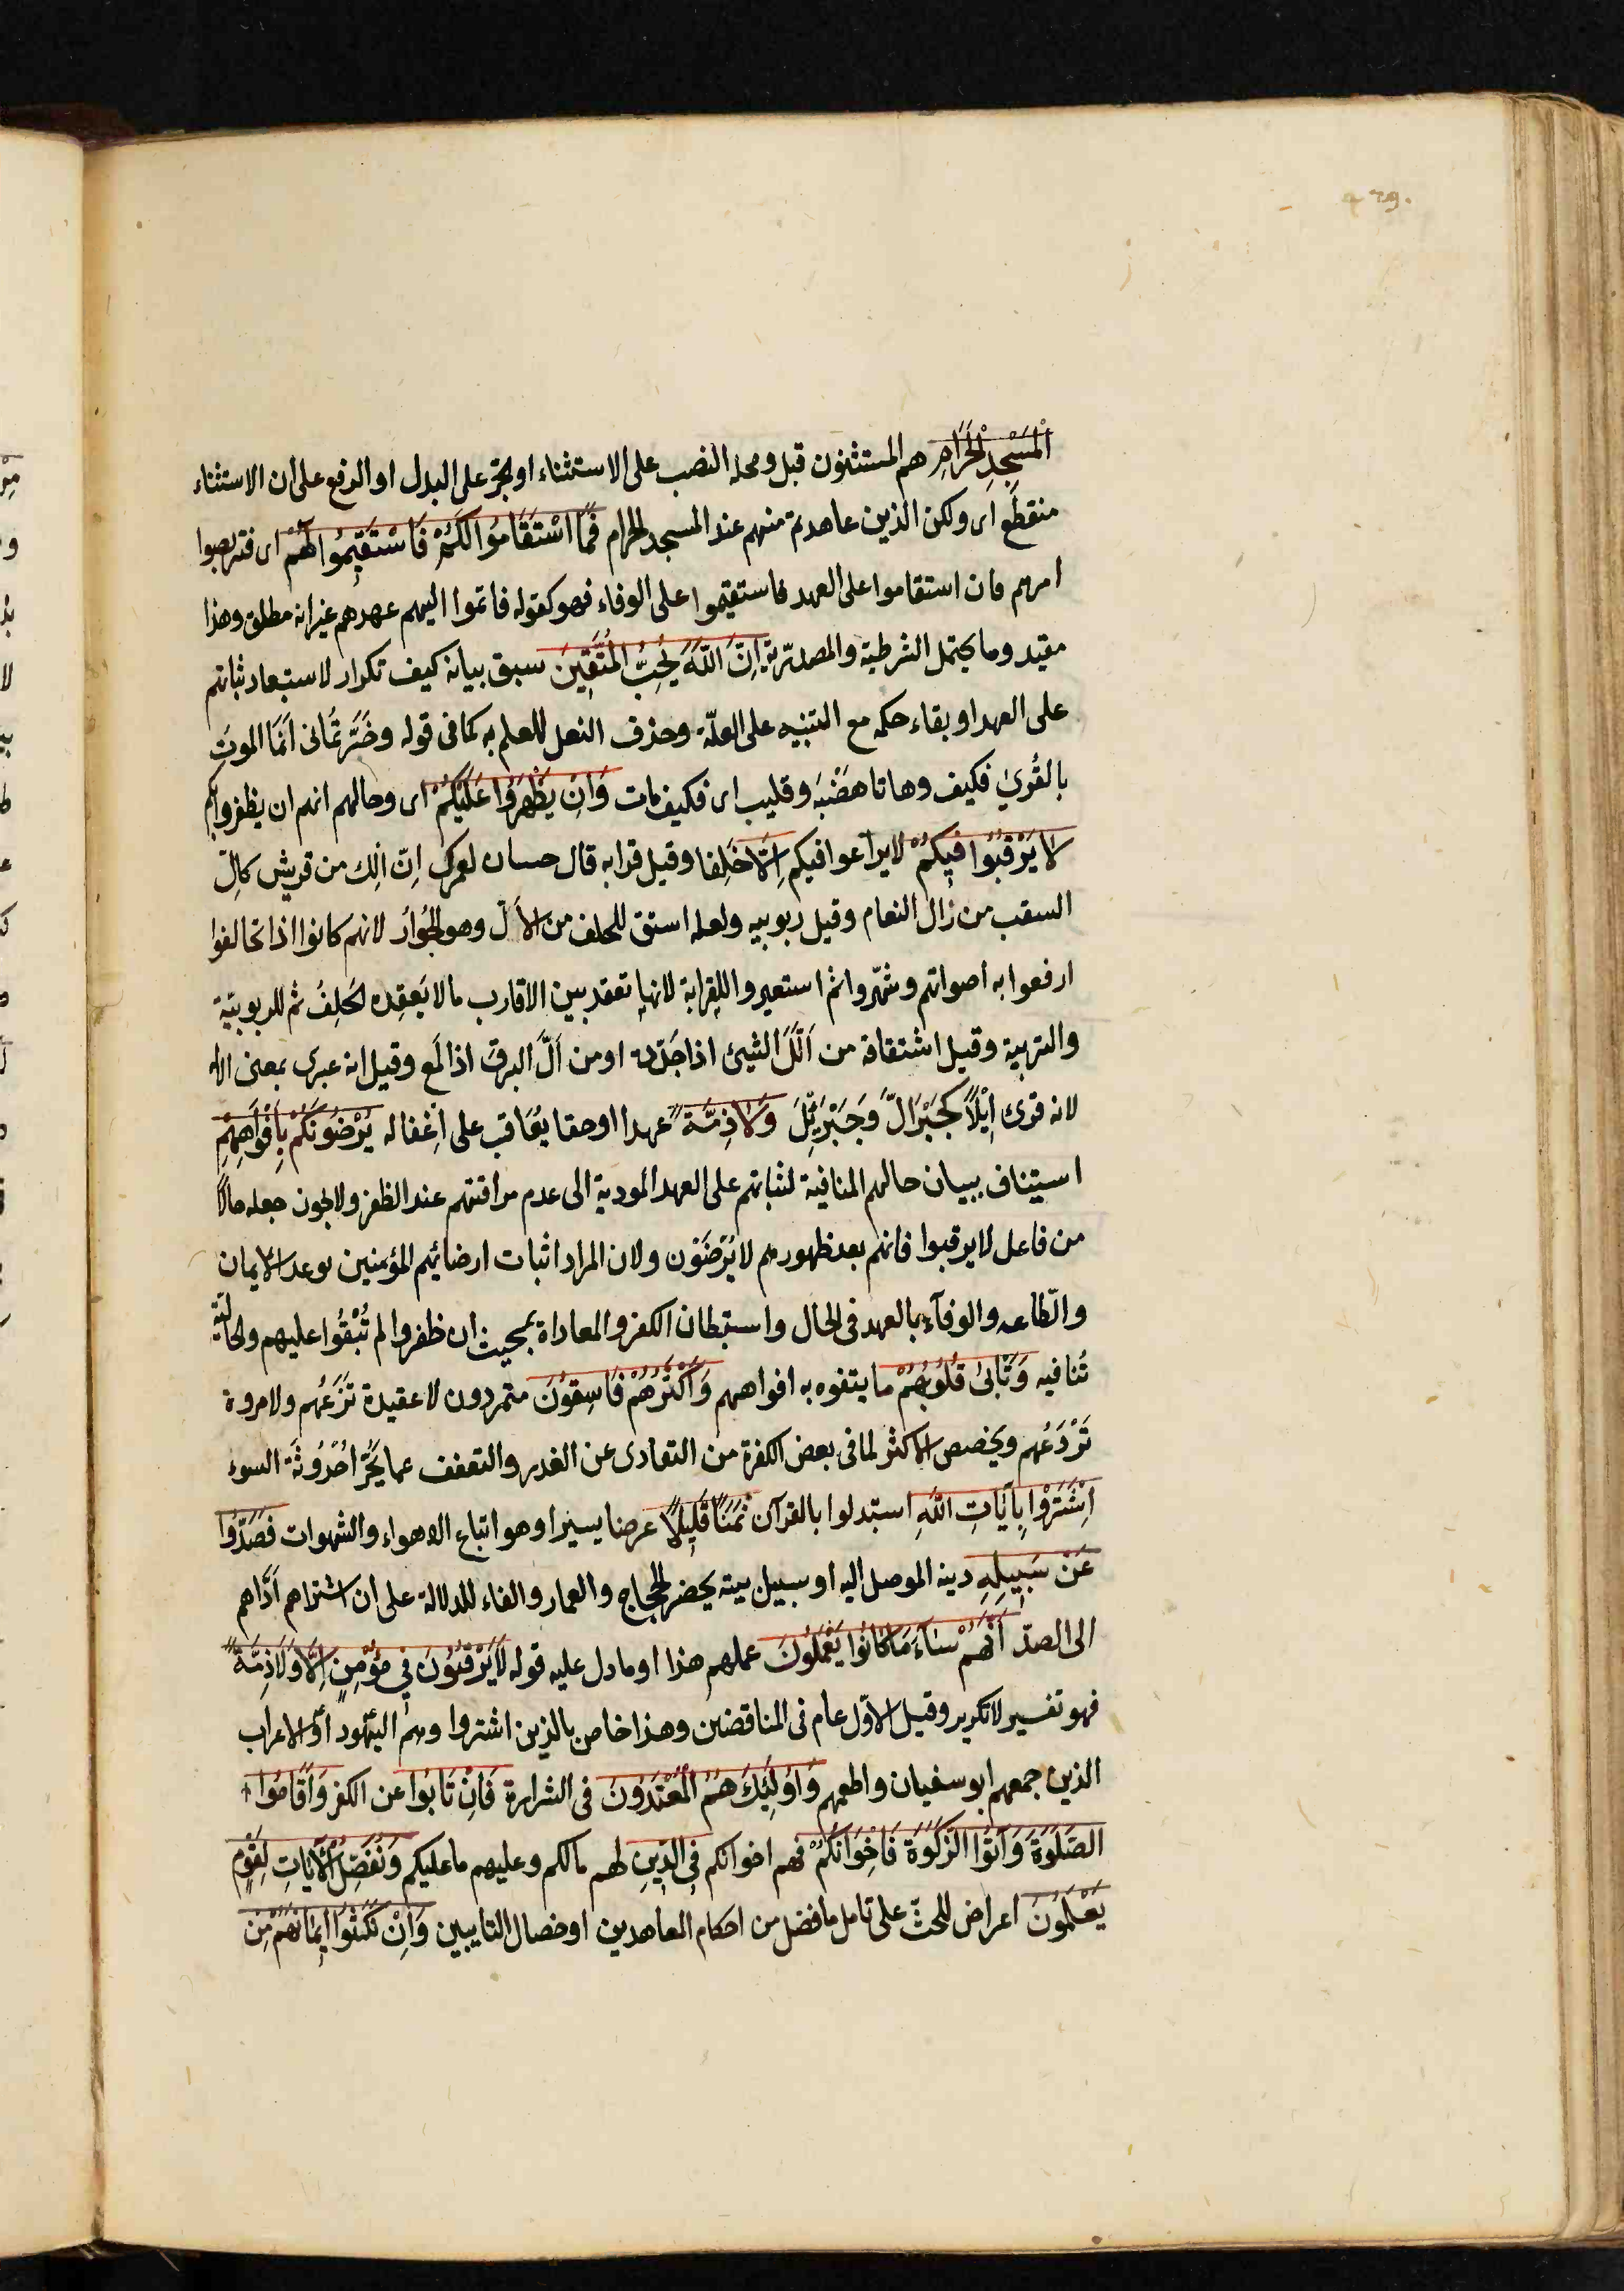 ٤٦٩
الْمَسْجِدِ الْحَرَامِ هم المستثنون قبل ومحله النصب على الاستثناء او الجرّ على البدل او الرفع على أن الاستثناء
منقطع اى ولكن الذين عاهدتم منهم عند المسجد الحرام فَمَا اسْتَقَامُوا لَكُمْ فَاسْتَقِيمُوا لَهُمْ اى فتربصوا
امرهم فان استقاموا على العهد فاستقيموا على الوفاء فهو كقوله فاتموا اليهم عهدهم غير انه مطلق وهذا
مقيد وما يحتمل الشرطية والمصدرية اِنَّ اللّٰهَ يُحِبُّ الْمُتَّقِينَ سبق بيانه كيف تكرار لاستبعاد ثباتهم
على العهد او بقاء حكمه مع التنبيه على العلّة وحذف الفعل للعلم به كما فى قوله وخَبَّرتُمانى أنَّمَا الموتُ
بالقُرىٰ فكيف وهاتا هَضْبَة وقليب اى فكيف مات وَاِنْ يَظْهَرُوا عَلَيْكُمْ اى وحالهم انهم ان يظفروا بكم
لَا يَرْقُبُوا فِيكُمْ لا يراعوا فيكم اِلًّا حَلِفا وقيل قرابه قال حسان لعمرك اِنّ الّك من قريش كالِّ
السقب من رَال النعام وقيل ربوبيه ولعله استق للحلف من الألّ وهو الجُوَارُ لانهم كانوا اذا تحالفوا
ارفعوا به اصواتهم وشهّروا ثم استعير واللقرابة لانها تعقد بين الاقارب ما لا يَعقِده الحَلِفُ ثم للربوبيّة
والتربية وقيل اشتقاقه من اَلَّلَ الشيئ اذا حَدّده او من اَلَّ البرق اذا لمع وقيل انه عبرى بمعنى الاله
لانه قرئ اِيْلًا كجَبْرَالّ وَجَبْرَئِلَ وَلَا ذِمَّةً عهدا اوحقا يُعَاقب على اغفاله يُرْضُونَكُمْ بِاَفْوَاهِهِمْ
استيناف ببيان حالهم المنافية لثباتهم على العهد المودية الى عدم مراقبتهم عند الظفر ولا يجوز جعله حالًا
من فاعل لا يرقبوا فانهم بعد ظهورهم لا يُرْضَوْن ولان المراد اثبات ارضائهم المؤمنين بوعد الايمان
والطاعه والوفآء بالعهد فى الحال واستبطان الكفر والمعاداة بحيث ان ظفروا لم يُبْقُوا عليهم والحالية
تُنافيه وَتَاْبىٰ قُلُوبُهُمْ ما يتفوه به افواههم وَاَكْثَرُهُمْ فَاسِقُونَ متمردون لا عقيدة تَزَعُهم ولا مروة
تَرْدَعُهم وتخصيص الاكثر لما فى بعض الكفرة من التفادى عن الغدر والتعفف عما يجُرّ اُحْدُوثَةَ السوء
اِشْتَرَوْا بِاٰيَاتِ اللّٰهِ استبدلوا بالقرآن ثَمَنًا قَلِيلًا عرضا يسيرا وهو اتباع الاهواء والشهوات فَصَدُّوا
عَنْ سَبِيلِهِ دينه الموصل اليه او سبيل بيته بحضر الحجاج والعمار والفاء للدلالة على ان اشتراهم اَدّاهم
الى الصدّ اَنَّهُمْ سَاءَ مَا كَانُوا يَعْمَلُونَ عملهم هذا او ما دل عليه قوله لَا يَرْقُبُونَ فِى مُؤْمِنٍ اِلًّا وَلَا ذِمَّةً
فهو تفسير لا تكرير وقيل الاوّل عام فى المناقضين وهذا خاص بالذين اشتروا وهُم اليَهُود او الاعراب
الذين جمعهم ابو سفيان واطعمهم وَاُولٰئِكَ هُمُ الْمُعْتَدُونَ فى الشرارة فَاِنْ تَابُوا عن الكفر وَاَقَامُوا
الصَّلٰوةَ وَاٰتَوُا الزَّكٰوةَ فَاِخْوَانُكُمْ فهم اخوانكم فِى الدِّينِ لهم مالكم وعليهم ما عليكم وَنُفَصِّلُ الْاٰيَاتِ لِقَوْمٍ
يَعْلَمُونَ اعراض للحثّ على تامل ما فصل من احكام المعاهدين او خصال التايبين وَاِنْ نَكَثُوا اَيْمَانَهُمْ مِنْ